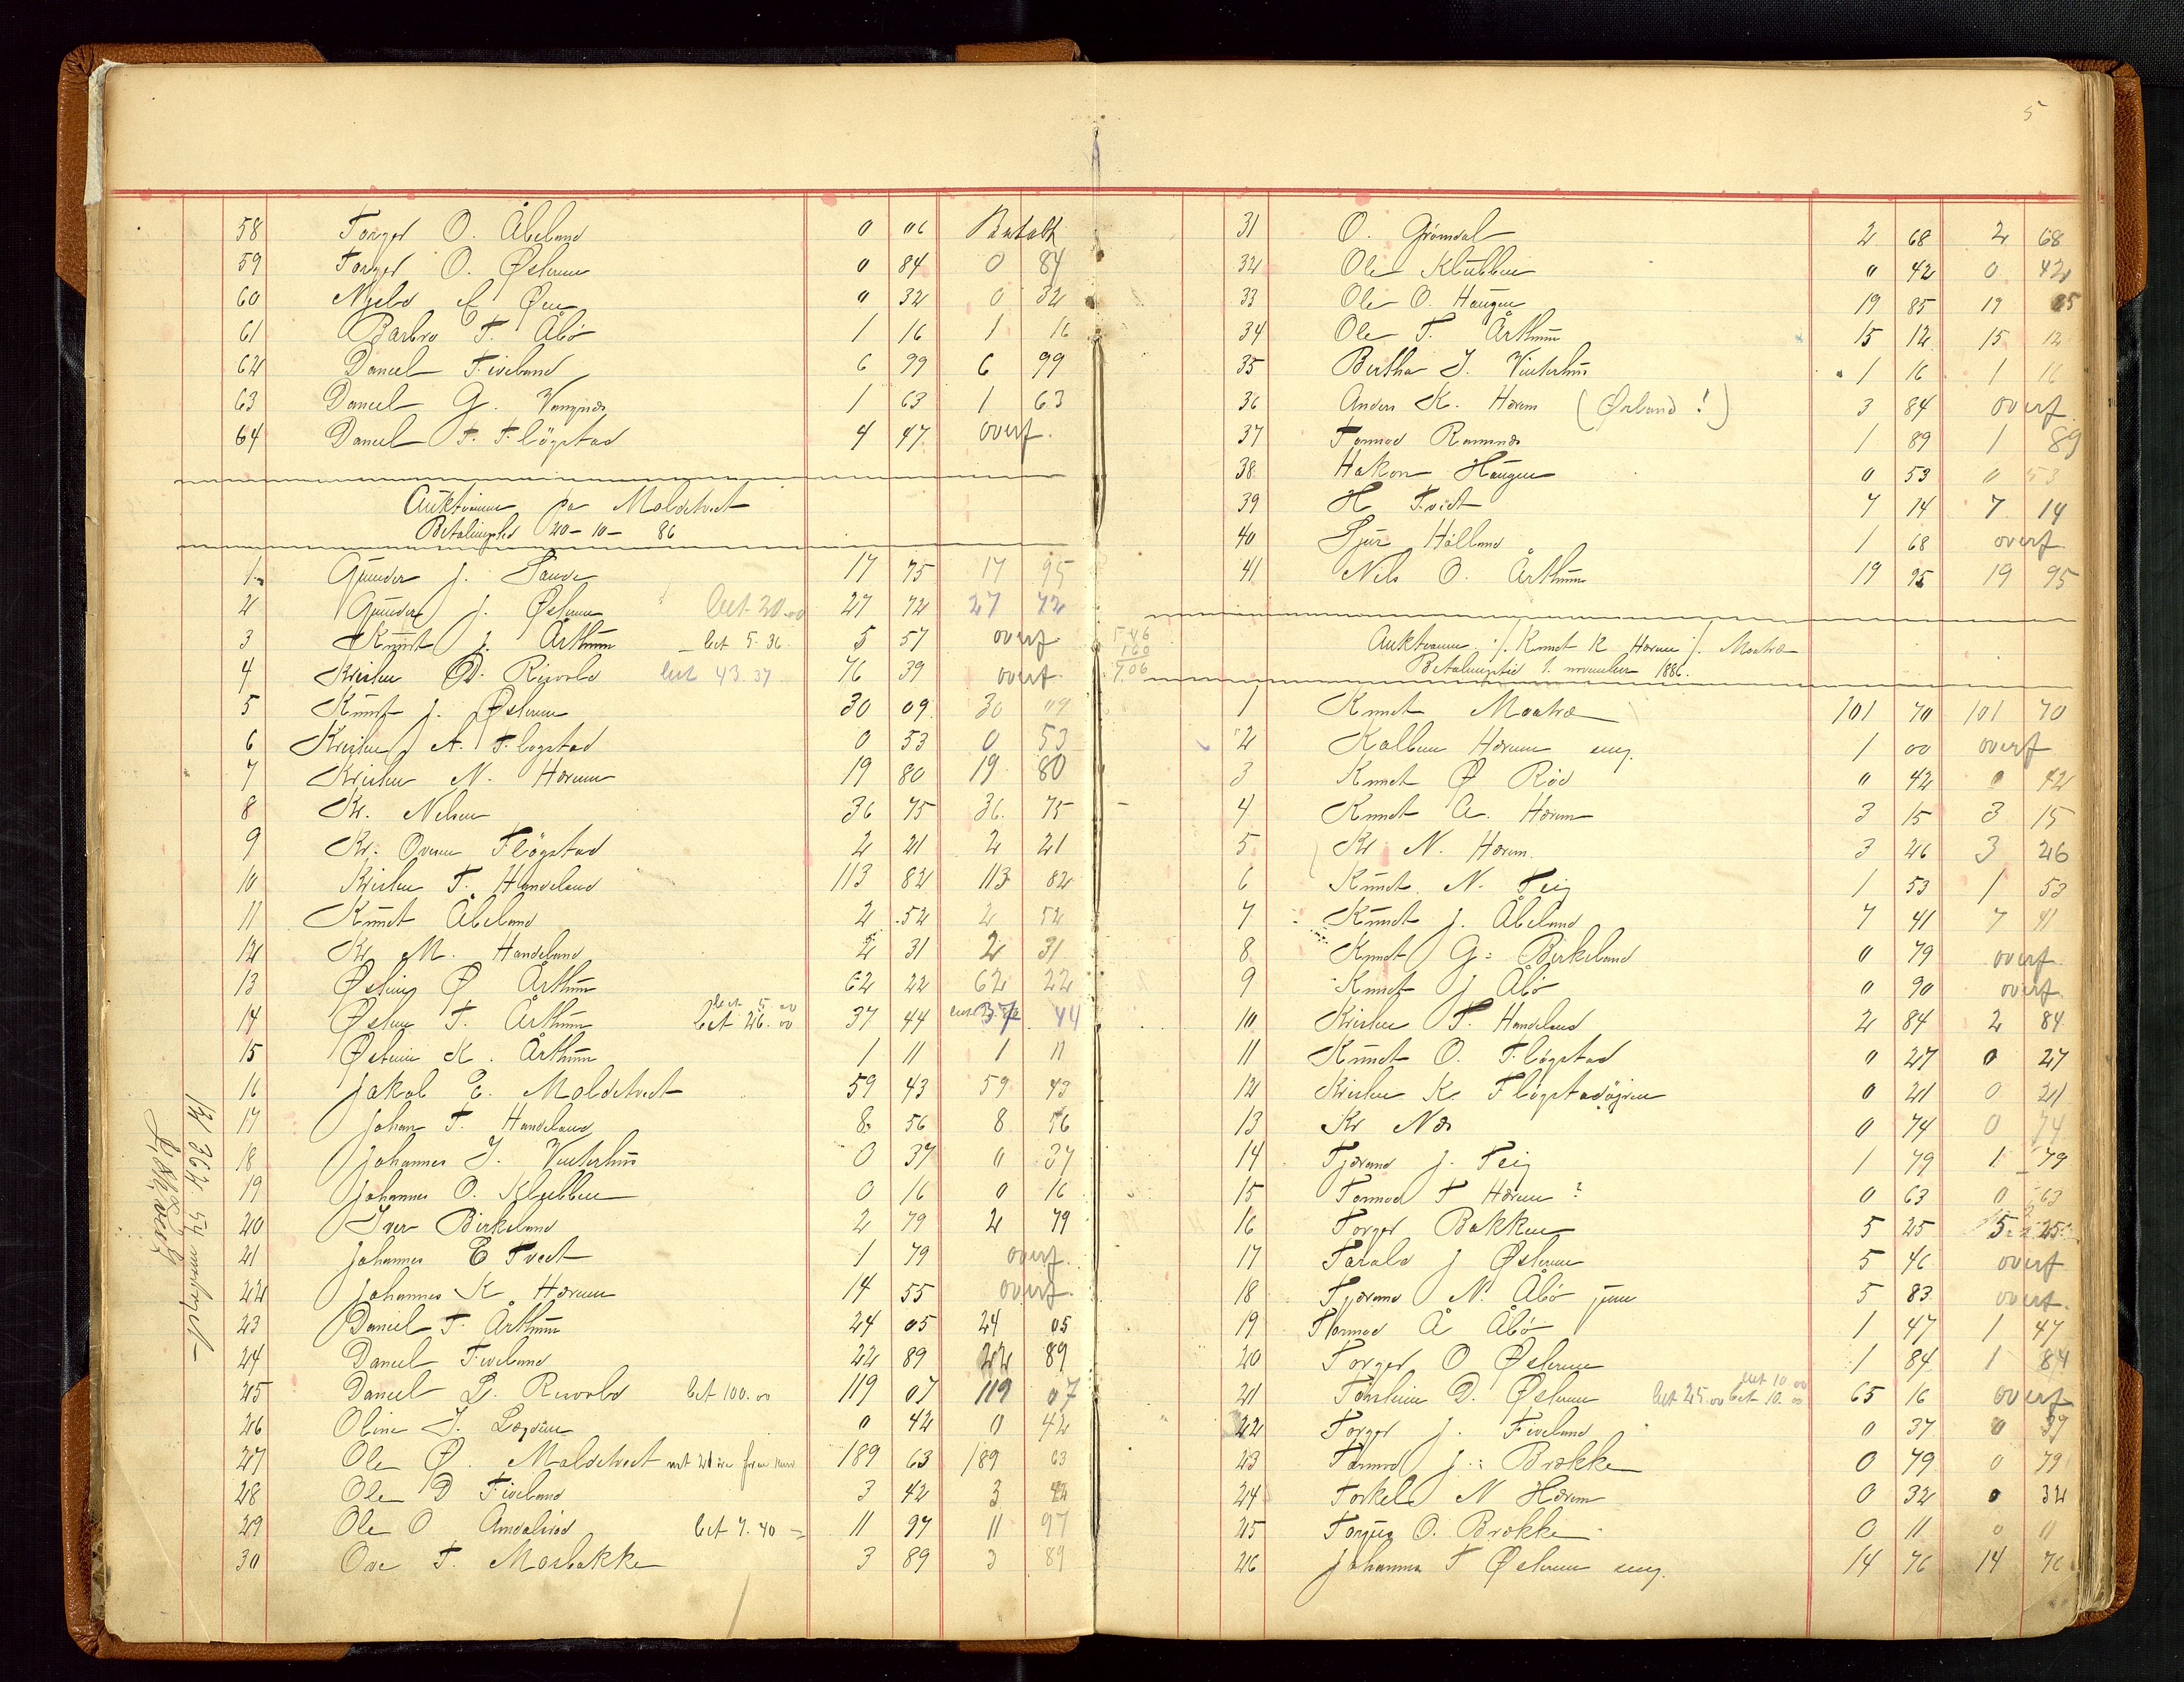 58 Torger O. Åbeland 0 06 Betalt
59 Torger O. Østerem 0 84 0 84
60 0 32 0 32
61 Barbro T. Åbø 1 16 1 16
62 Daniel Fiveland 6 99 6 99
63 Daniel G. 1 63 1 63
64 Daniel T. Fløgstad 4 47 overf.
Auktionen på Moldetvedt
Betalingstid 20-10-86
1 Gunder J. Sande 17 95 17 95
2 Gunder J. Østerem bet 20.00 27 72 27 72
3 Knudt J. Årthun bet 5.36 5 57 overf
4 Kristen D. Risvold bet 43.37 76 39 overf.
5 Knudt J. Østerem 30 09 30 09
6 Kristen A. Fløgstad 0 53 0 53
7 Kristen N. Horem 19 80 19 80
8 Kr. Nelsen 36 75 36. 75
9 Kr. Fløgstad 2 21 2 21
10 Kristen T. Handeland 113 82 113 82
11 Knudt Åbeland 2 52 2 52
12 Kr M. Handeland 2 31 2 31
13 Østein Ø Årthun 62 22 62 22
14 Østen T. Årthun bet 5.00 bet 26.00 37 44 37 44
15 Østein K. Årthun 1 11 1 11
16 Jakob E. Moldetvedt 59 43 59 43
17 Johan T. Handeland 8 56 8 56
18 Johannes J. Vinterhus 0 37 0 37
19 Johannes O. Klubben 0 16 0 16
20 Iver Birkeland 2 79 2 79
21 Johannes E Tvedt 1 79 overf.
22 Johannes K Horem 14 55 overf.
23 Daniel T. Årthun 24 05 24 05
24 Daniel Fiveland 22 89 22 89
25 Daniel L. Risvold bet 100.00 119 07 119 07
26 Oline J. 0 42 0 42
27 Ole Ø. Moldetvedt 189 63 189 63
28 Ole D Fiveland 3 42 3 42
29 Ole O Amdalsrød bet 7.40 11 97 11 97
30 Ove T. Mosbakke 3 89 3 89
5
31 O. Grønsdal 2 68 2 68
32 Ole Klubben 0 42 0 42
33 Ole O. Haugen 19 85 19 85
34 Ole T. Årthun 15 12 15 12
35 Bertha J. Vinterhus 1 16 1 16
36 Anders K. Horem (Ørland!) 3 84 overf.
37 Tormod Ramsnes 1 89 1 89
38 Hakon Haugen 0 53 0 53
39 H Tvedt 7 14 7 14
40 Sjur Hålland 1 68 overf
41 Nils O. Årthun 19 95 19 95
5 46
1 60
7.06
Auktionen Knudt K Horem Maatræ
Betalingstid 1. november 1886.
1 Knudt Maatræ 101 70 101 70
2 Kolben Horem ung. 1 00 overf
3 Knudt Ø Rød 0 42 0 42
4 Knudt A. Horem 3 15 3 15
5 Kr N. Horem. 3 26 3 26
6 Knudt N. Teig 1 53 1 53
7 Knudt J. Åbeland 7 41 7 41
8 Knudt G. Birkeland 0 79 overf
9 Knudt J Åbø 0 90 overf.
10 Kristen T. Handeland 2 84 2 84
11 Knudt O. Fløgstad 0 27 0 27
12 Kristen K. Fløgstadøjren 0 21 0 21
13 Kr Næs 0 74 0 74
14 Tjerand J. Teig 1 79 1 79
15 Tormod T Horem? 0 63 0 63
16 Torger Bakken 5 25 5 25
17 Tarald J Østerem 5 46 overf
18 Tjerand N. Åbø jun 5 83 overf.
19 Tormod Å Åbø 1 47 1 47
20 Torger O Østerem 1 84 1 84
21 Thorstein D. Østerem bet 25.00 bet 10.00 bet 10.00 65 16 overf
22 Torger J. Fiveland 0 37 0 37
23 Tormod J. Brække 0 79 0 79
24 Torkel N Horem 0 32 0 32
25 Torger O. Brække 0 11 0 11
26 Johannes T Østerem ung. 14 76 14 76